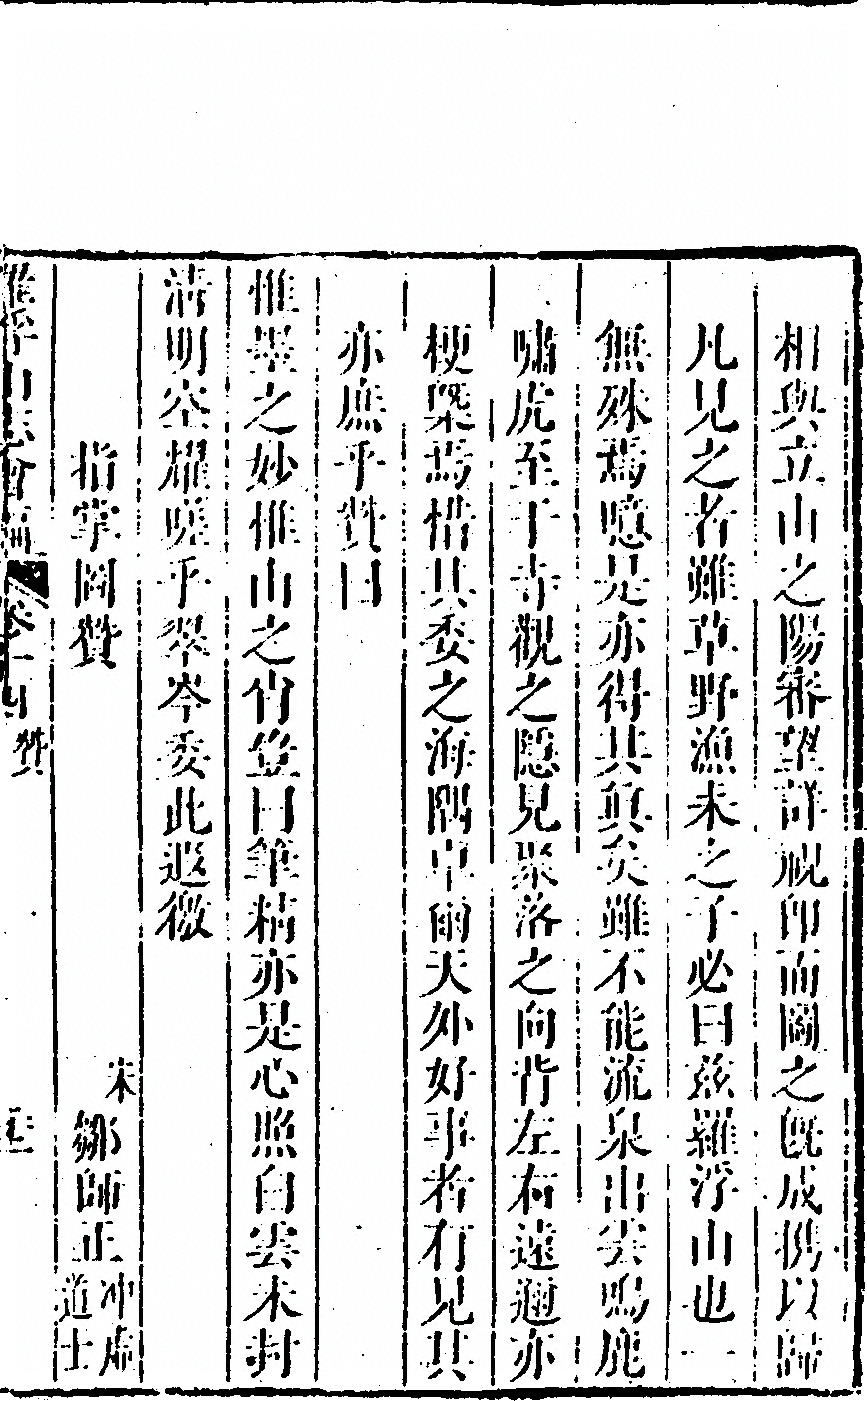 相與立山之陽審望詳視印而圖之旣成携以歸
凡見之者雖草野漁未之了必曰茲羅浮山也一
無殊焉噫是亦得其眞矣雖不能流泉出雲鳴鹿
嘯虎至于寺觀之隱見聚落之向背左右遠邇亦
梗槩焉惜其委之海隅卑爾天外好事者有見其
亦庶乎贊曰
惟畢之妙惟山之肖筮曰筆精亦是心照白雲未封
淸明空耀嗟乎翠岑委此遐徼
指掌圖贊 宋 鄒師正 冲虛道士
羅浮山志會編 卷十四 贊